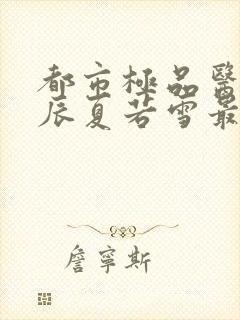 都市極品醫
辰夏若雪最
詹寧斯